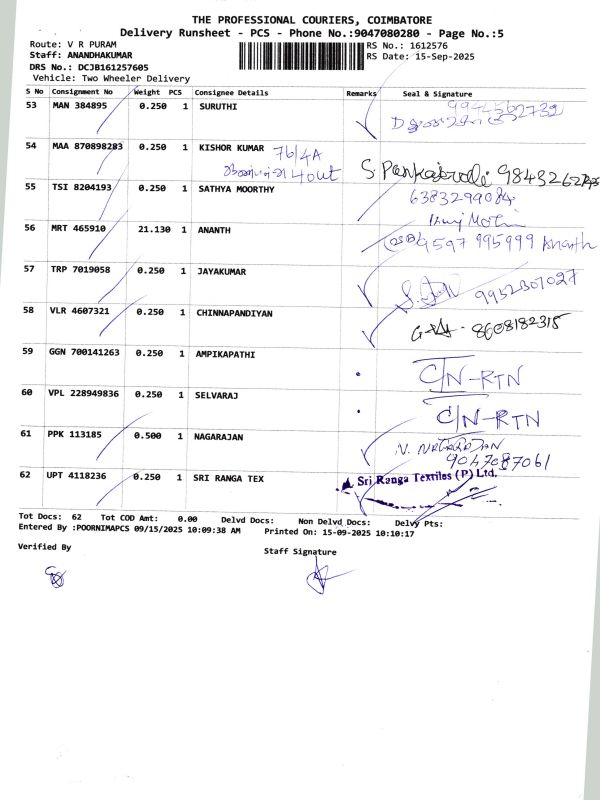 THE PROFESSIONAL COURIERS, COIMBATORE
Delivery Runsheet - PCS - Phone No.:9047080280 - Page No.:5
Route: V R PURAM
RS No.: 1612576
Staff: ANANDHAKUMAR
RS Date: 15-Sep-2025
DRS No.: DCJB161257605
Vehicle: Two Wheeler Delivery
S No Consignment No Weight PCS Consignee Details Remarks Seal & Signature
53 MAN 384895 0.250 1 SURUTHI
54 MAA 870898283 0.250 1 KISHOR KUMAR 76/4A
4 out
55 TSI 8204193 0.250 1 SATHYA MOORTHY 6383299084
56 MRT 465910 21.130 1 ANANTH 9597 995999 Ananth
57 TRP 7019058 0.250 1 JAYAKUMAR 9952301027
58 VLR 4607321 0.250 1 CHINNAPANDIYAN 8608182315
59 GGN 700141263 0.250 1 AMPIKAPATHI C/N-RTN
60 VPL 228949836 0.250 1 SELVARAJ C/N-RTN
61 PPK 113185 0.500 1 NAGARAJAN N. NAGARAJAN
9047087061
62 UPT 4118236 0.250 1 SRI RANGA TEX Sri Ranga Textiles (P) Ltd.
Tot Docs: 62 Tot COD Amt: 0.00 Delvd Docs: Non Delvd Docs: Delvy Pts:
Entered By :POORNIMAPCS 09/15/2025 10:09:38 AM Printed On: 15-09-2025 10:10:17
Verified By
Staff Signature